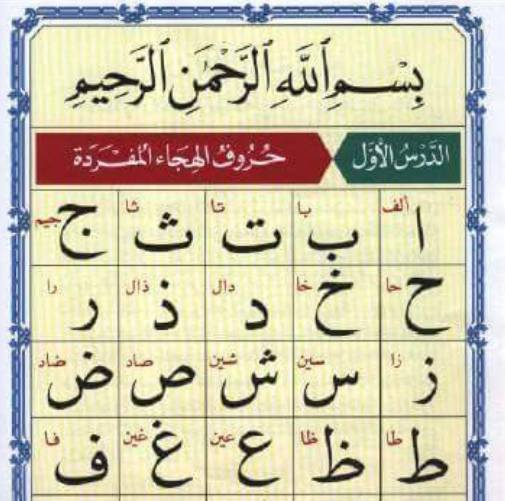 بِسْمِ ٱللَّهِ ٱلرَّحْمَٰنِ ٱلرَّحِيمِ
الدَّرْسُ الْأَوَّل حُرُوفُ الهِجَاءِ المُفْرَدَة
ا ألف ب با ت تا ث ثا ج جيم
ح حا خ خا د دال ذ ذال ر را
ز زا س سين ش شين ص صاد ض ضاد
ط طا ظ ظا ع عين غ غين ف فا